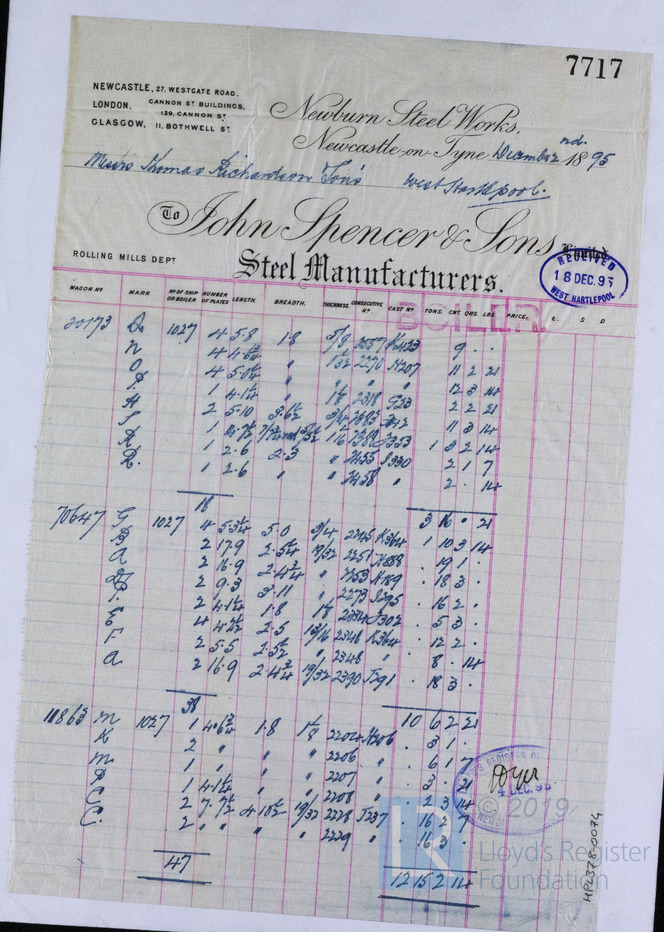 7717
NEWCASTLE, 27, WESTGATE ROAD.
LONDON, CANNON ST BUILDINGS,
139, CANNON ST
GLASGOW, 11, BOTHWELL ST
Newburn Steel Works,
Newcastle-on-Tyne December 2nd. 1895
Messrs Thomas Richardson & Sons West Hartlepool.
To John Spencer & Sons Limited,
Steel Manufacturers.
ROLLING MILLS DEPT
RECEIVED
18 DEC. 95
WEST HARTLEPOOL
BOILER
WAGON No MARK No OF SHIP OR BOILER NUMBER OF PLATES LENGTH. BREADTH. THICKNESS. CONSECUTIVE No CAST No TONS. CWT. QRS. LBS. PRICE. £. S. D
20173 1027 4 5.8 1.8 5/8 2557 9 . .
n 4 4.6¾ " 1 2270 H207 11 2 21
O 4 5.0¼ " " " 12 3 14
P. 1 4.1¼ " 1⅛ 2318 2 2 21
2 5.10 3/4 11 3 14
1 1 3 2 14
1 2.6 2.3 " 2455 S330 2 1 7
1 2.6 " " 2458 " 2 . 14
18 3 16 0 21
70647 G 1027 4 5.3¼ 5.0 3/4 2245 K364 1 10 3 14
B 2 17.9 2.5¼ 19/32 2251 . 19 1 .
a 2 16.9 2.4¾ " . 18 3 .
2 9.3 3.11 " 2273 S295 . 16 2 .
2 4.1¼ 1.8 1⅛ 2334 . 5 3 .
E 4 4.2½ 2.5 13/16 2348 K364 . 12 2 .
F. 2 5.5 2.5½ " 2348 " . 8 . 14
a 2 16.9 2.4¾ 19/32 2390 J291 . 18 3 .
38 10 6 2 21
10863 m 1027 1 4.6¾ 1.8 1⅛ 2202 H206 . 3 1 .
K 2 " " " 2206 " . 6 1 7
m 1 " " " 2207 . 3 . 21
P 1 4.1¼ " " 2208 . 2 3 14
C 2 7.7½ 4.10½ 19/32 2228 J237 . 16 2 7
C. 2 " " " 2229 " . 16 3 .
47 12 15 2 14
Dyer
DEC. 95
© 2019
Lloyd's Register
Foundation
HPL378-0074